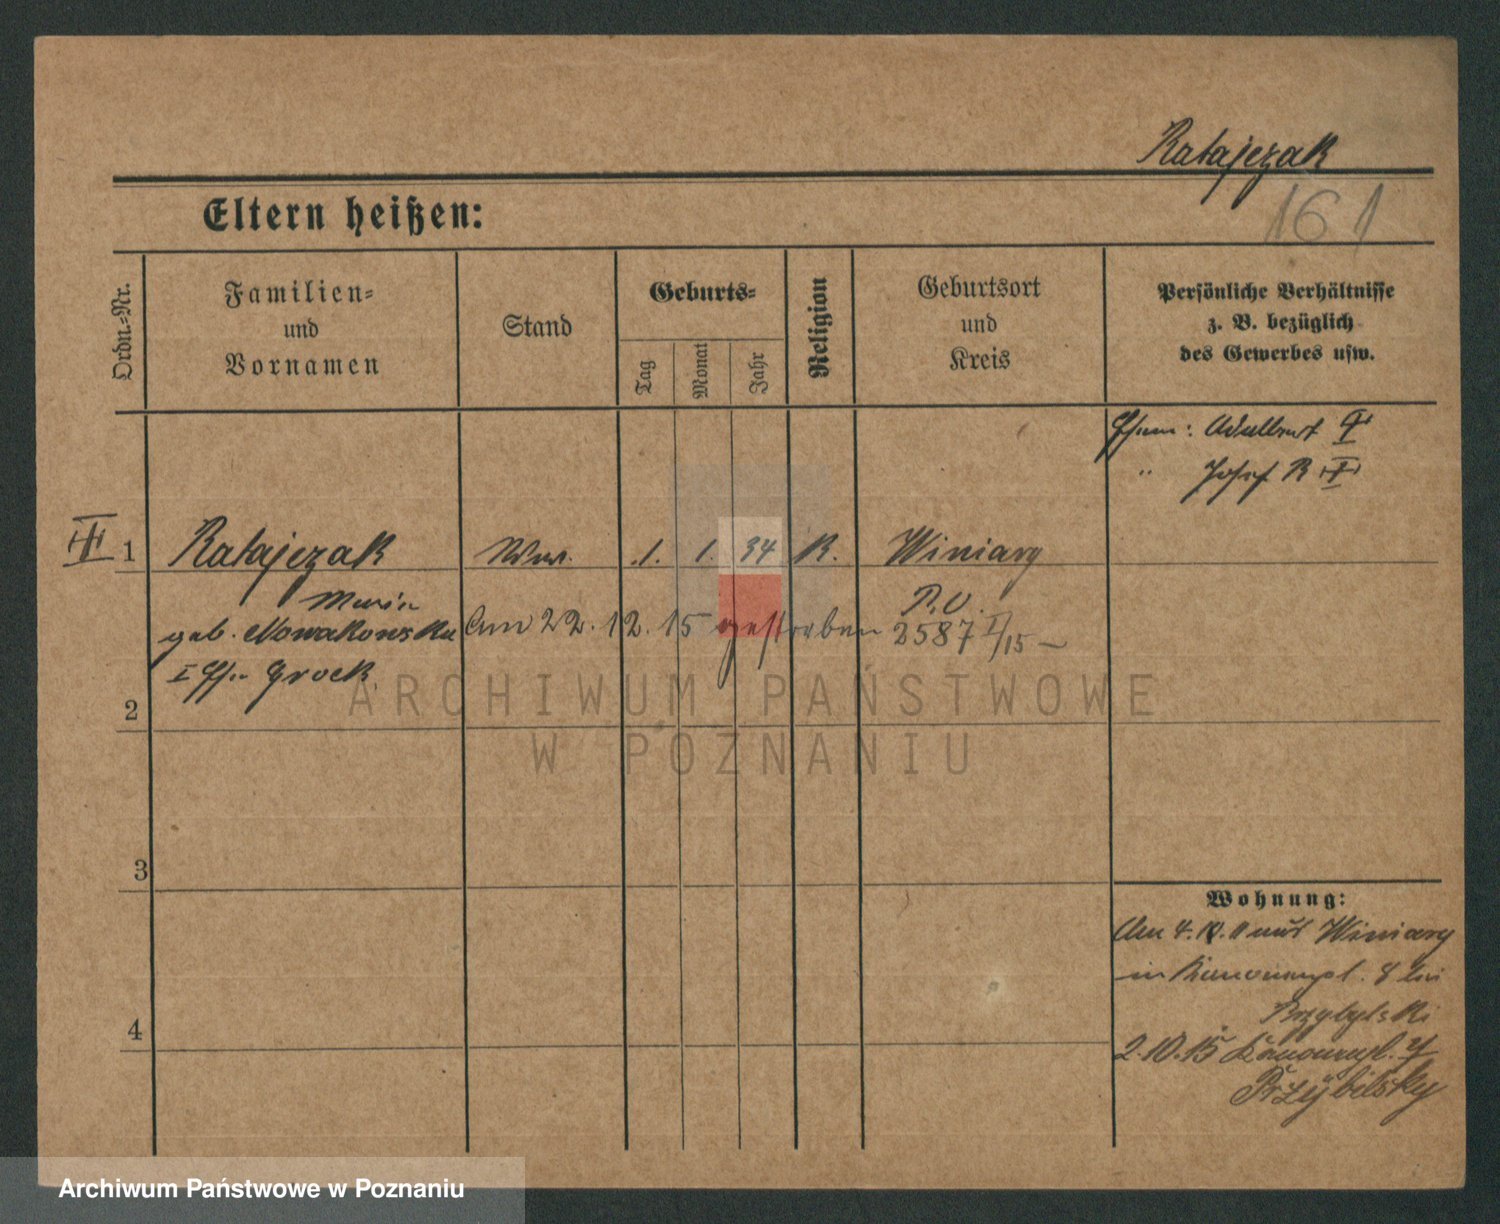 Ratajczak
161
Eltern heißen:
Ordn.-Nr.
Familien-
und
Vornamen
Stand
Geburts-
Tag
Monat
Jahr
Religion
Geburtsort
und
Kreis
Persönliche Verhältnisse
z. B. bezüglich
des Gewerbes usw.
Adalbert I
" Josef R II
III 1 Ratajczak Ww. 1. 1. 34 K. Winiary
Marie
geb. Nowakowska am 22.12.15 gestorben P.V. 2587 I/15
I Grock
2
3
4
Wohnung:
Am 4.10.11 aus Winiary
in Kanonenpl. 8 bei
Przybylski
2.10.15 Kanonenpl. 7
Przybilsky
ARCHIWUM PAŃSTWOWE
W POZNANIU
Archiwum Państwowe w Poznaniu